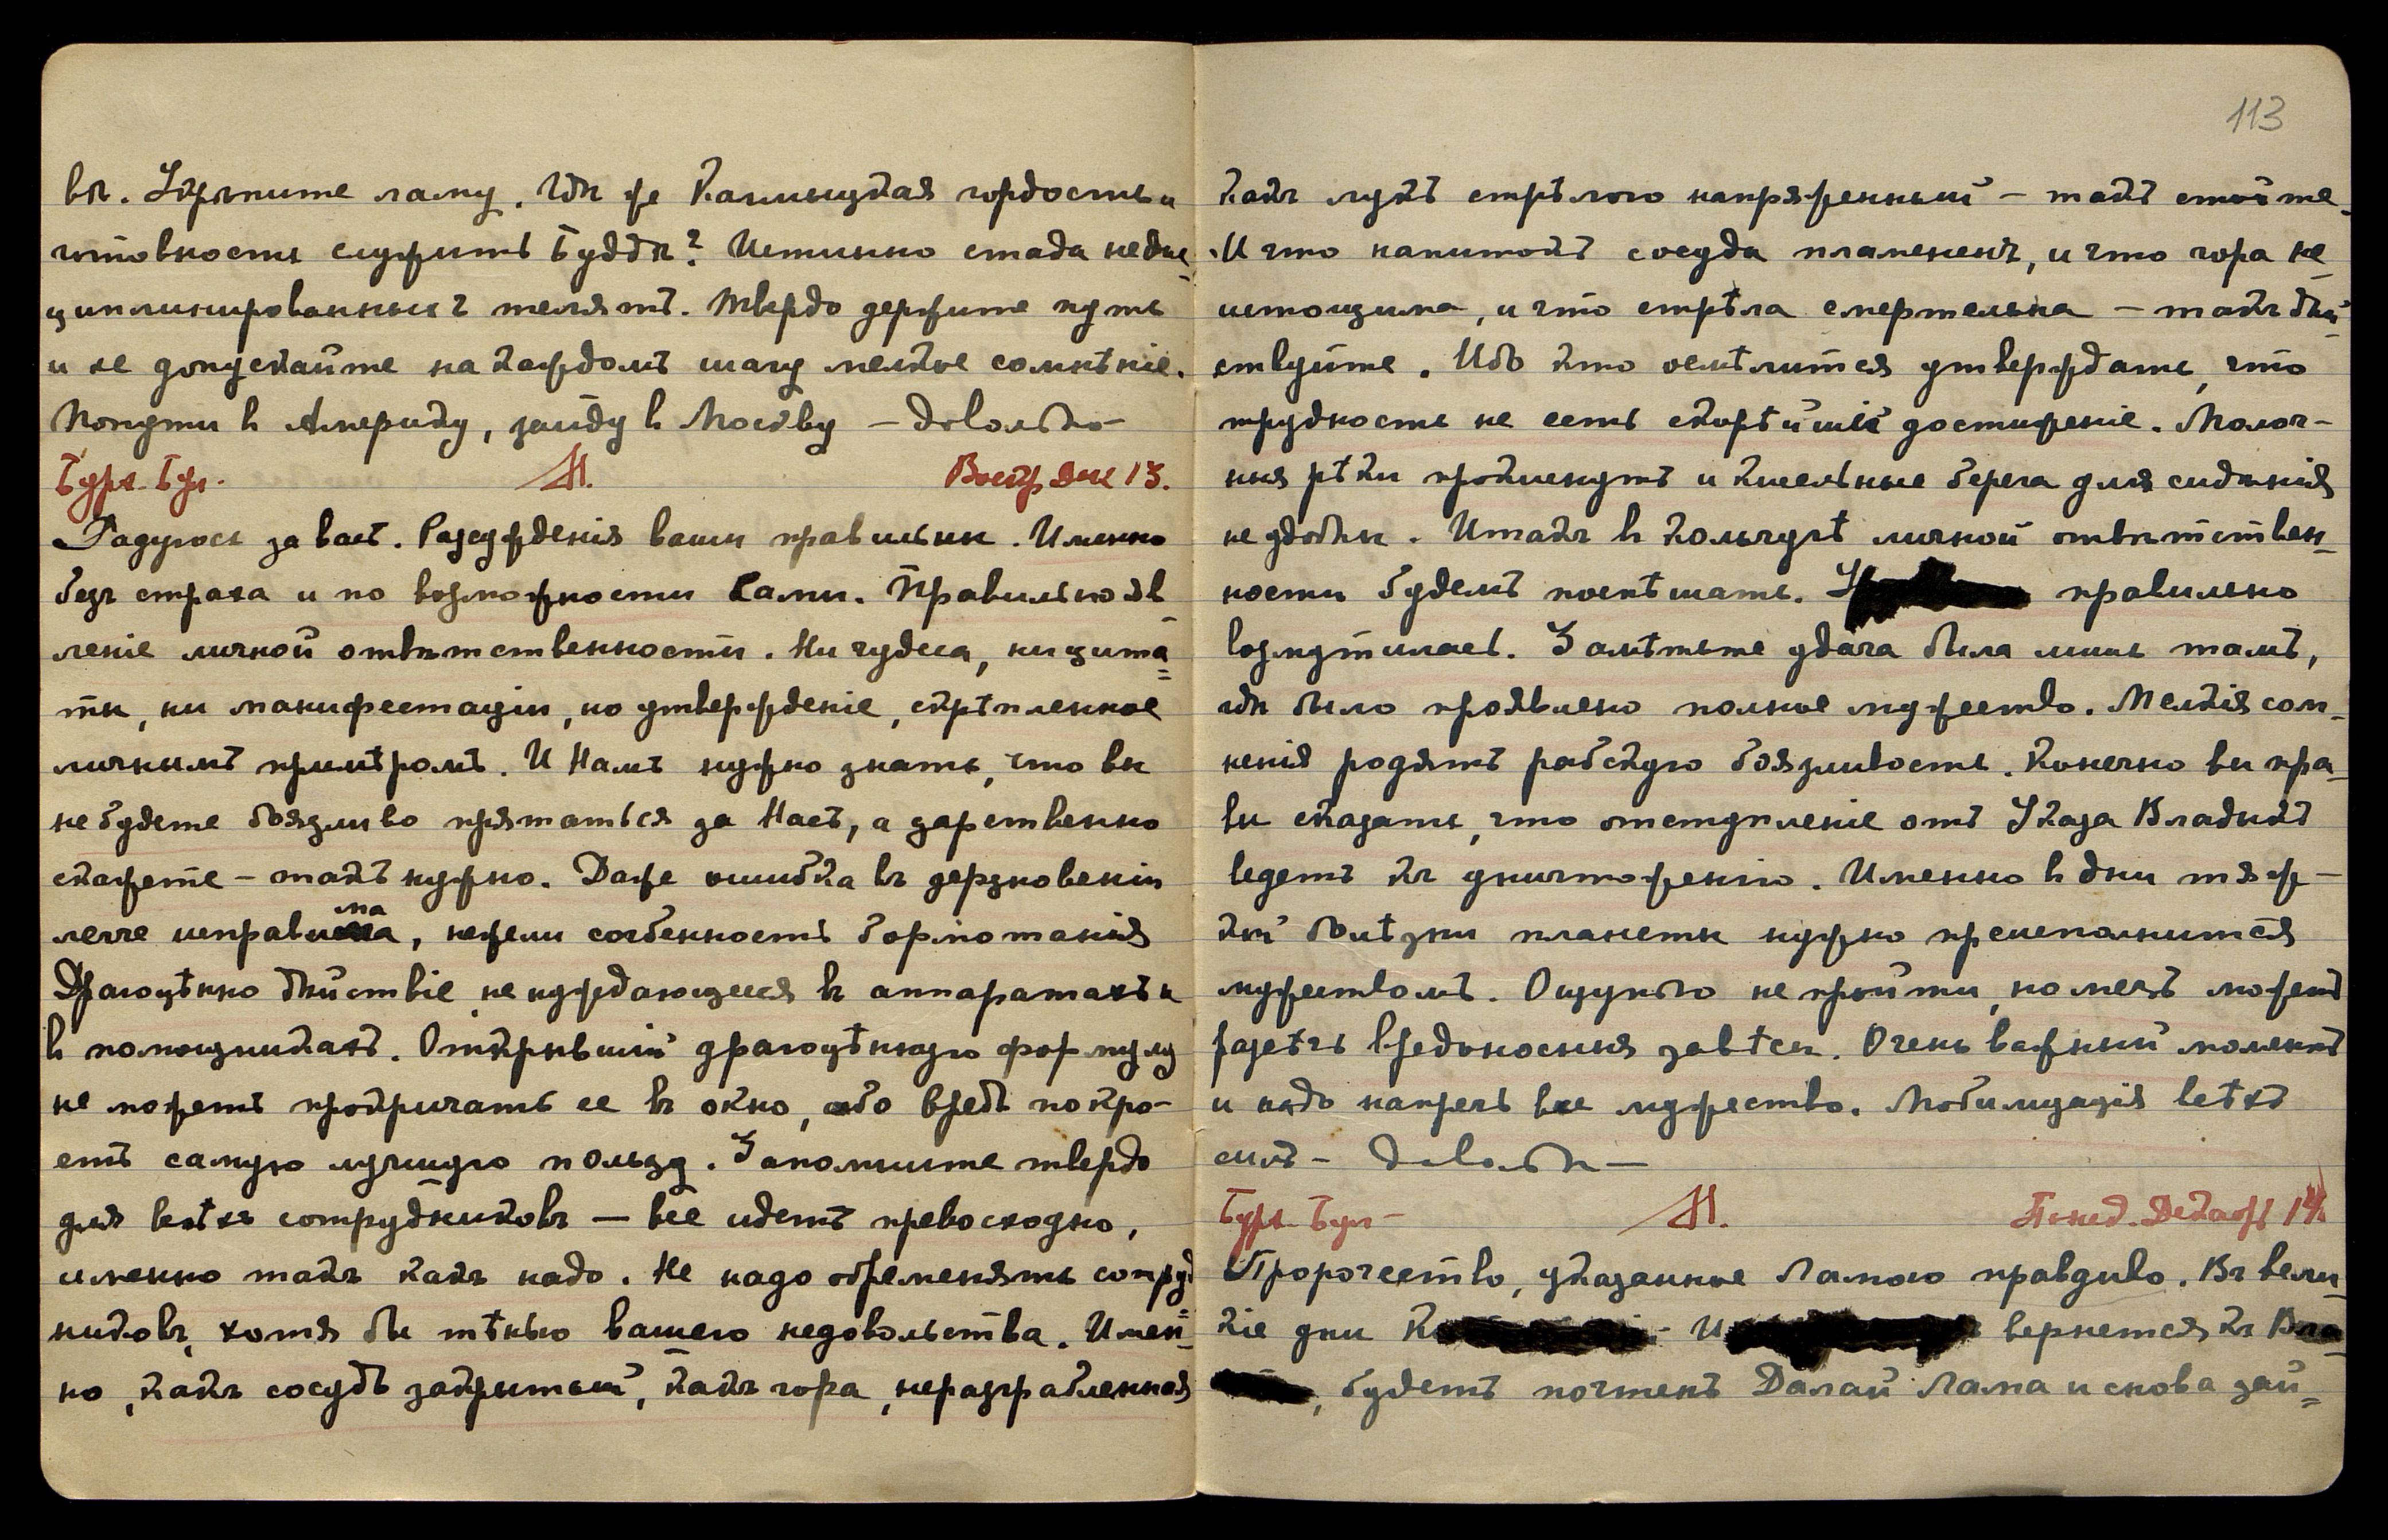 вы. Укрепите ламу. Гдѣ же Калмыцкая гордость и
готовность служить Буддѣ? Истинно стада недис-
циплинированныхъ телятъ. Твердо держите путь
и не допускайте на каждомъ шагу мелкое сомнѣніе.
По пути в Америку, зайду в Москву – довольно –
Бурх. Бул. М. Воскр Дек 13.
Радуюсь за васъ. Разсужденія ваши правильны. Именно
безъ страха и по возможности сами. Правильно яв-
леніе личной отвѣтственности. Ни чудеса, ни цита-
ты, ни манифестаціи, но утвержденіе, скрѣпленное
личнымъ примѣромъ. И Намъ нужно знать, что вы
не будете боязливо прятаться за Насъ, а царственно
скажете – такъ нужно. Даже ошибка въ дерзновеніи
легче исправима, нежели согбенность бормотанія
Драгоцѣнно дѣйствіе не нуждающееся въ аппаратахъ и
в помощникахъ. Открывшій драгоцѣнную формулу
не можетъ прокричать ее въ окно, ибо вредъ покро-
етъ самую лучшую пользу. Запомните твердо
для всѣхъ сотрудниковъ – все идетъ превосходно,
именно такъ какъ надо. Не надо обременять сотруд
никовъ, хотя бы тѣнью вашего недовольства. Имен-
но, какъ сосудъ закрытый, какъ гора, неразграбленная
113
какъ лукъ стрѣлою напряженный – такъ стойте.
И что напитокъ сосуда пламененъ, и что гора не-
истощима, и что стрѣла смертельна – такъ дѣй-
ствуйте. Ибо кто осмѣлится утверждать, что
трудность не есть скорѣйшее достиженіе. Молоч-
ныя рѣки прокиснутъ и кисельные берега для сидѣнія
неудобны. Итакъ в кольчугѣ личной отвѣтствен-
ности будемъ поспѣшать. правильно
возмутилась. Замѣтьте удача была лишь тамъ,
гдѣ было проявлено полное мужество. Мелкія сом-
ненія родятъ рабскую боязливость. Конечно вы пра-
вы сказать, что отступленіе отъ Указа Владыкъ
ведетъ къ уничтоженію. Именно в дни тяж-
кой болѣзни планеты нужно преисполниться
мужествомъ. Ощупью не пройти, но мечъ можетъ
разсѣчь вредоносныя завѣсы. Очень важный моментъ
и надо напречь все мужество. Мобилизація всѣхъ
силъ – довольно –
Бурх. Бул – М. Понед. Декабр 14
Пророчество, указанное Ламою правдиво. Въ вели-
кіе дни вернется къ
, будетъ почтенъ Далай Лама и снова зай-